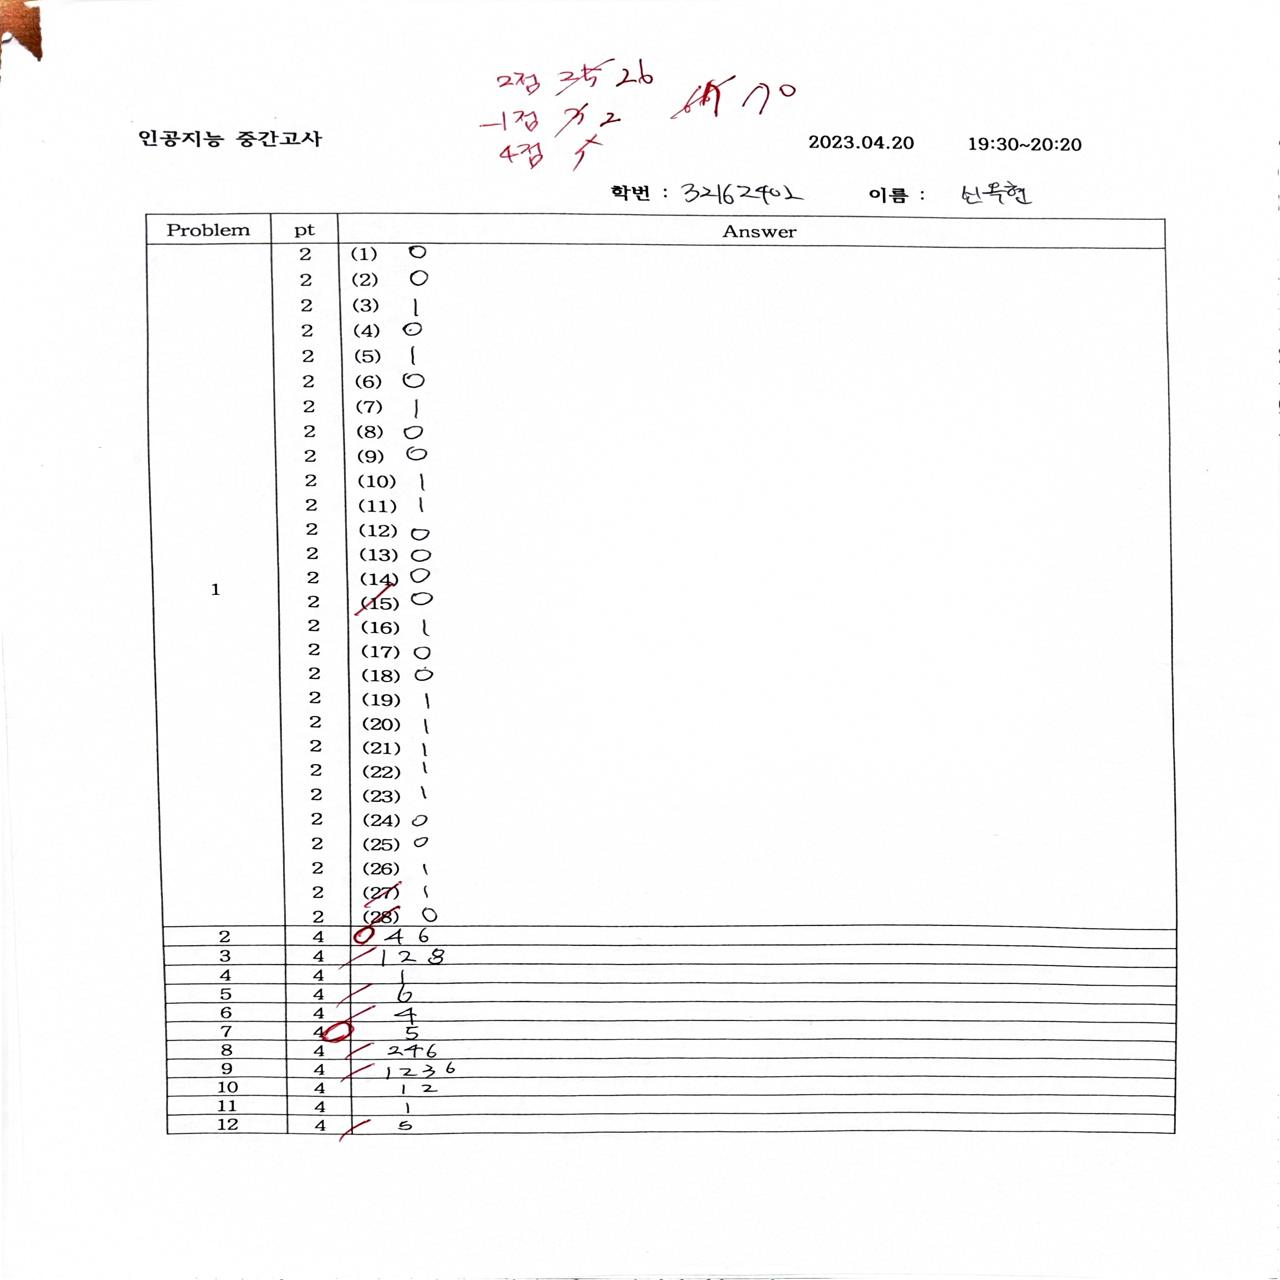 2점 26
70
-1점 2
인공지능 중간고사 2023.04.20 19:30~20:20
4점
학번 : 32162402 이름 : 신욱현
Problem pt Answer
2 (1) 0
2 (2) 0
2 (3) 1
2 (4) 0
2 (5) 1
2 (6) 0
2 (7) 1
2 (8) 0
2 (9) 0
2 (10) 1
2 (11) 1
2 (12) 0
2 (13) 0
2 (14) 0
1 2 (15) 0
2 (16) 1
2 (17) 0
2 (18) 0
2 (19) 1
2 (20) 1
2 (21) 1
2 (22) 1
2 (23) 1
2 (24) 0
2 (25) 0
2 (26) 1
2 (27) 1
2 (28) 0
2 4 4 6
3 4 1 2 8
4 4 1
5 4 6
6 4 4
7 4 5
8 4 2 4 6
9 4 1 2 3 6
10 4 1 2
11 4 1
12 4 5